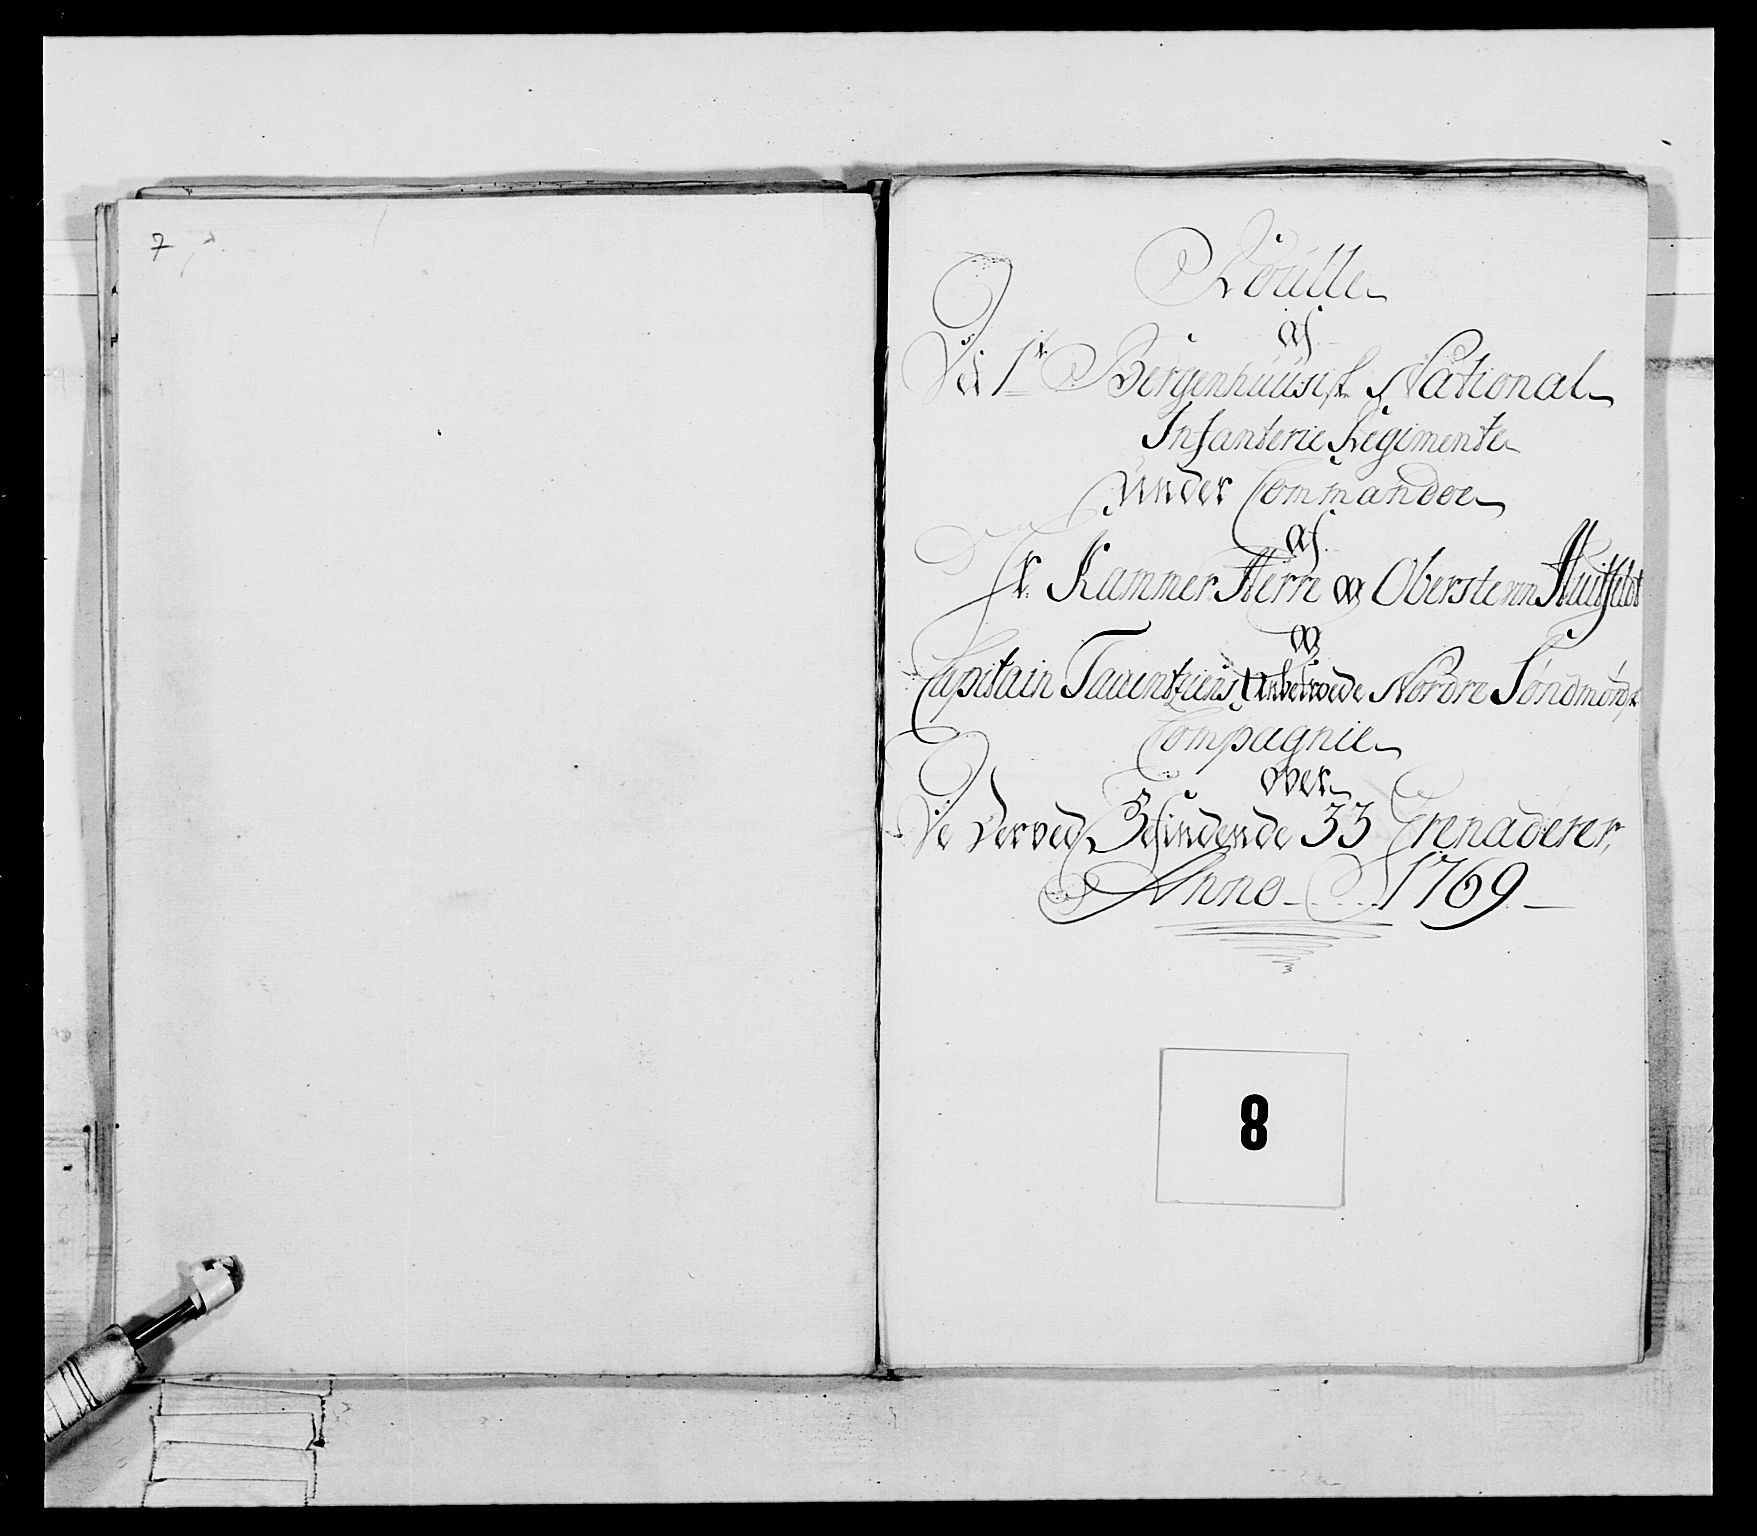 7
Roulle
af
Det 1te Bergenhuusisk National
Infanterie Regimente
under Commandoe
af
Hr Kammer Herre og Oberste von Huitfeldt
og
Capitain Tauentziens Anbetroede Nordre Söndmörsk
Compagnie
over
De Derved Befindende 33 Grenaderer,
Anno 1769
8